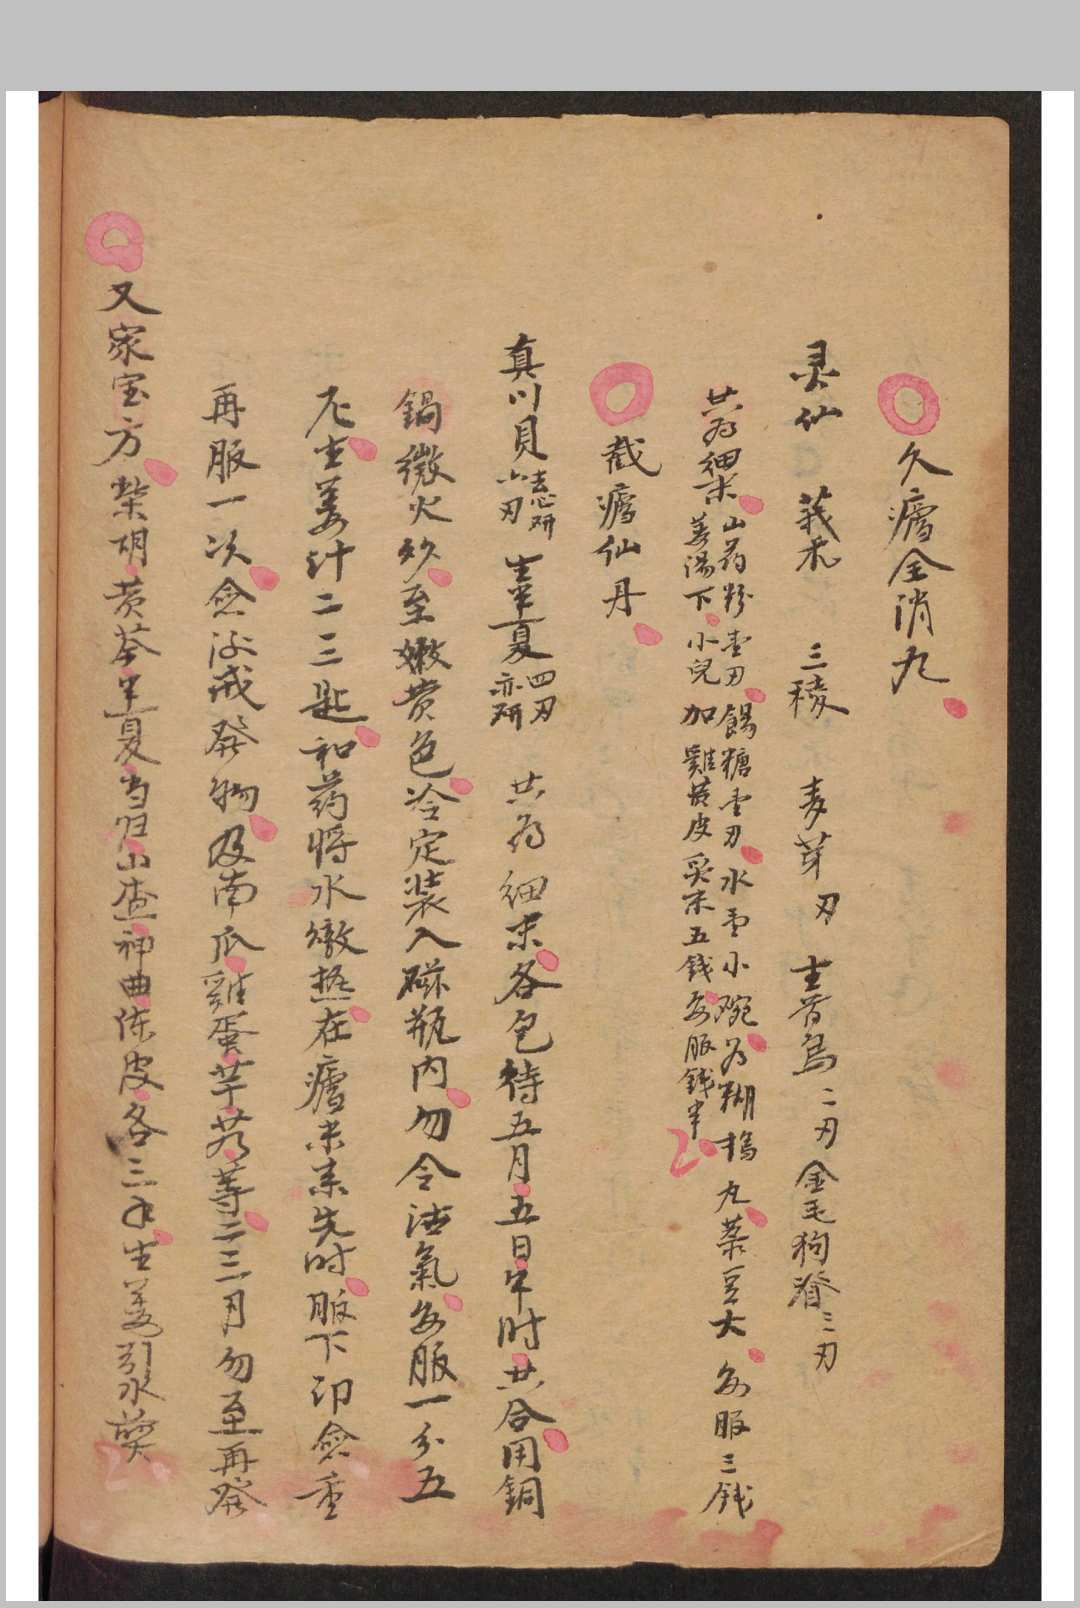 久瘧全消丸
灵仙 莪朮 三稜 麦芽刃 生首烏二刃 金毛狗脊三刃
共为細末 山药粉壹刃 餳糖壹刃 水壹小碗为糊 搗丸菉豆大 每服三钱
姜湯下 小兒加雞黃皮炙末五錢 每服錢半
截瘧仙丹
真川貝六刃去心研 生半夏四刃亦研 共为細末各包待五月五日午时共合用銅
鍋微火炒至嫩黄色冷定装入磁瓶内勿令泄氣每服一分五
厘生姜汁二三匙和药將水燉热在瘧未来先时服下即愈重
再服一次愈后戒發物及南瓜雞蛋芋艿等二三月勿至再發
又家宝方 柴胡黄芩半夏当归山查神曲陈皮各三钱生姜引水煎